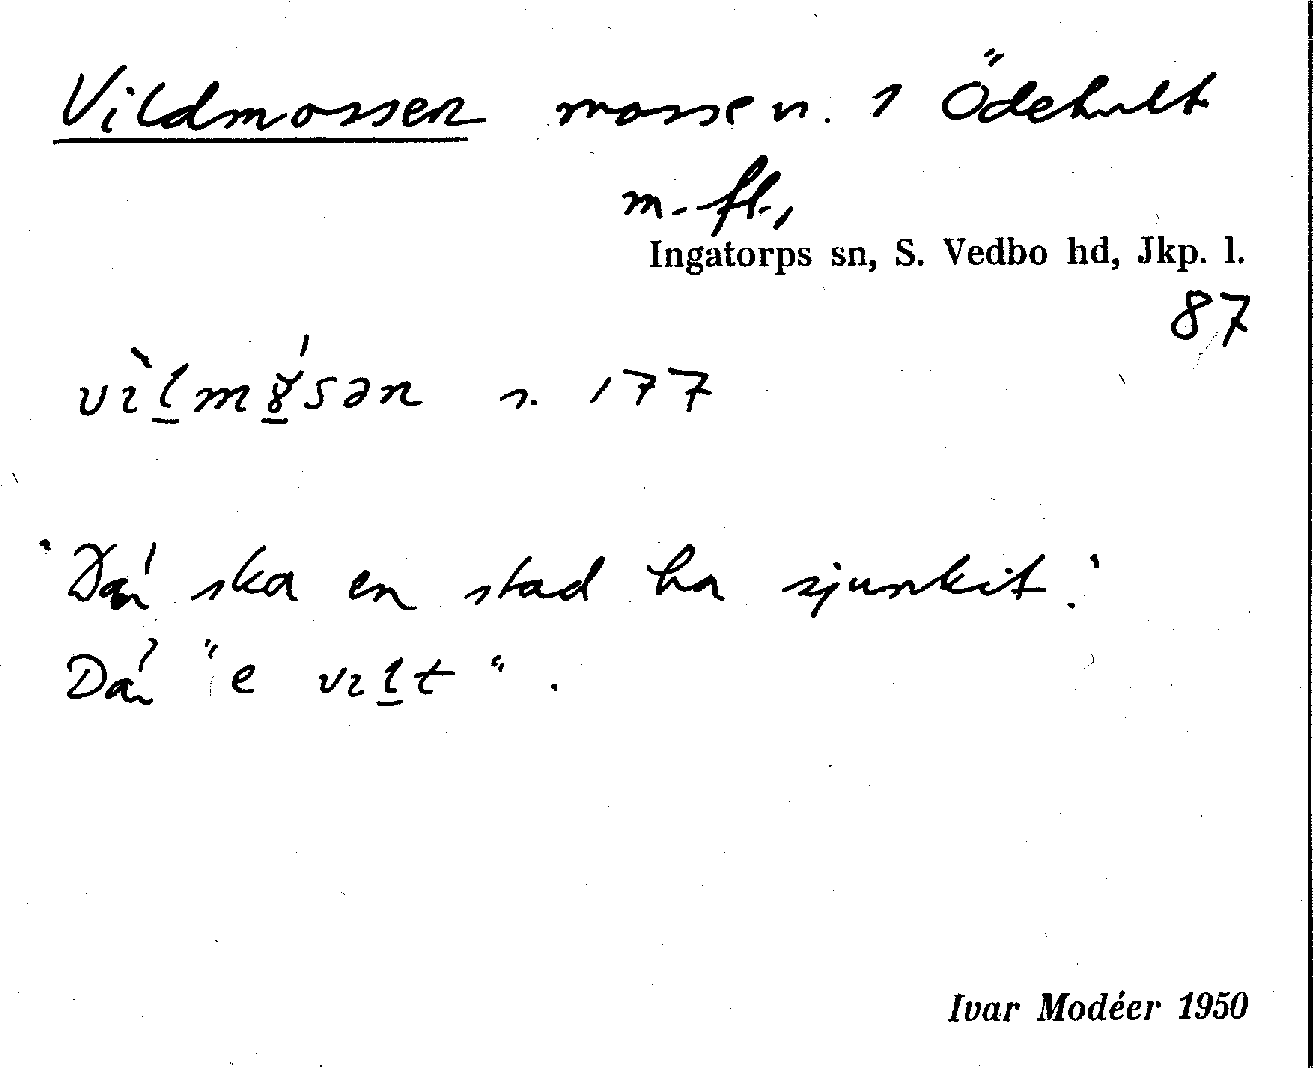 Vildmossen mosse n. 1 Ödehult
m. fl.,
Ingatorps sn, S. Vedbo hd, Jkp. l.
87
s. 177
"Där ska en stad ha sjunkit."
Där "e vilt".
Ivar Modéer 1950